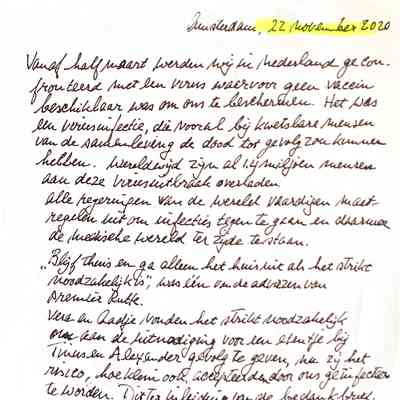 Amsterdam, 22 november 2020
Vanaf half maart werden wij in nederland gecon-
fronteerd met een virus waarvoor geen vaccin
beschikbaar was om ons te beschermen. Het was
een virusinfectie, die vooral bij kwetsbare mensen
van de samenleving de dood tot gevolg zou kunnen
hebben. Wereldwijd zijn al 1,4 miljoen mensen
aan deze virusuitbraak overleden.
alle regeringen van de wereld vaardigen maat-
regelen uit om infecties tegen te gaan en daarmee
de medische wereld ter zijde te staan.
„Blijf thuis en ga alleen het huis uit als het strikt
noodzakelijk is", was één van de adviezen van
Premier Rutte.
Vera en Aadje vonden het strikt noodzakelijk
aan de uitnodiging voor een etentje bij
Truus en Alexander gevolg te geven, nu zij het
risico, hoe klein ook, accepteerden door ons geïnfecteerd
te worden. Dit ter inleiding van de bedankbrief.